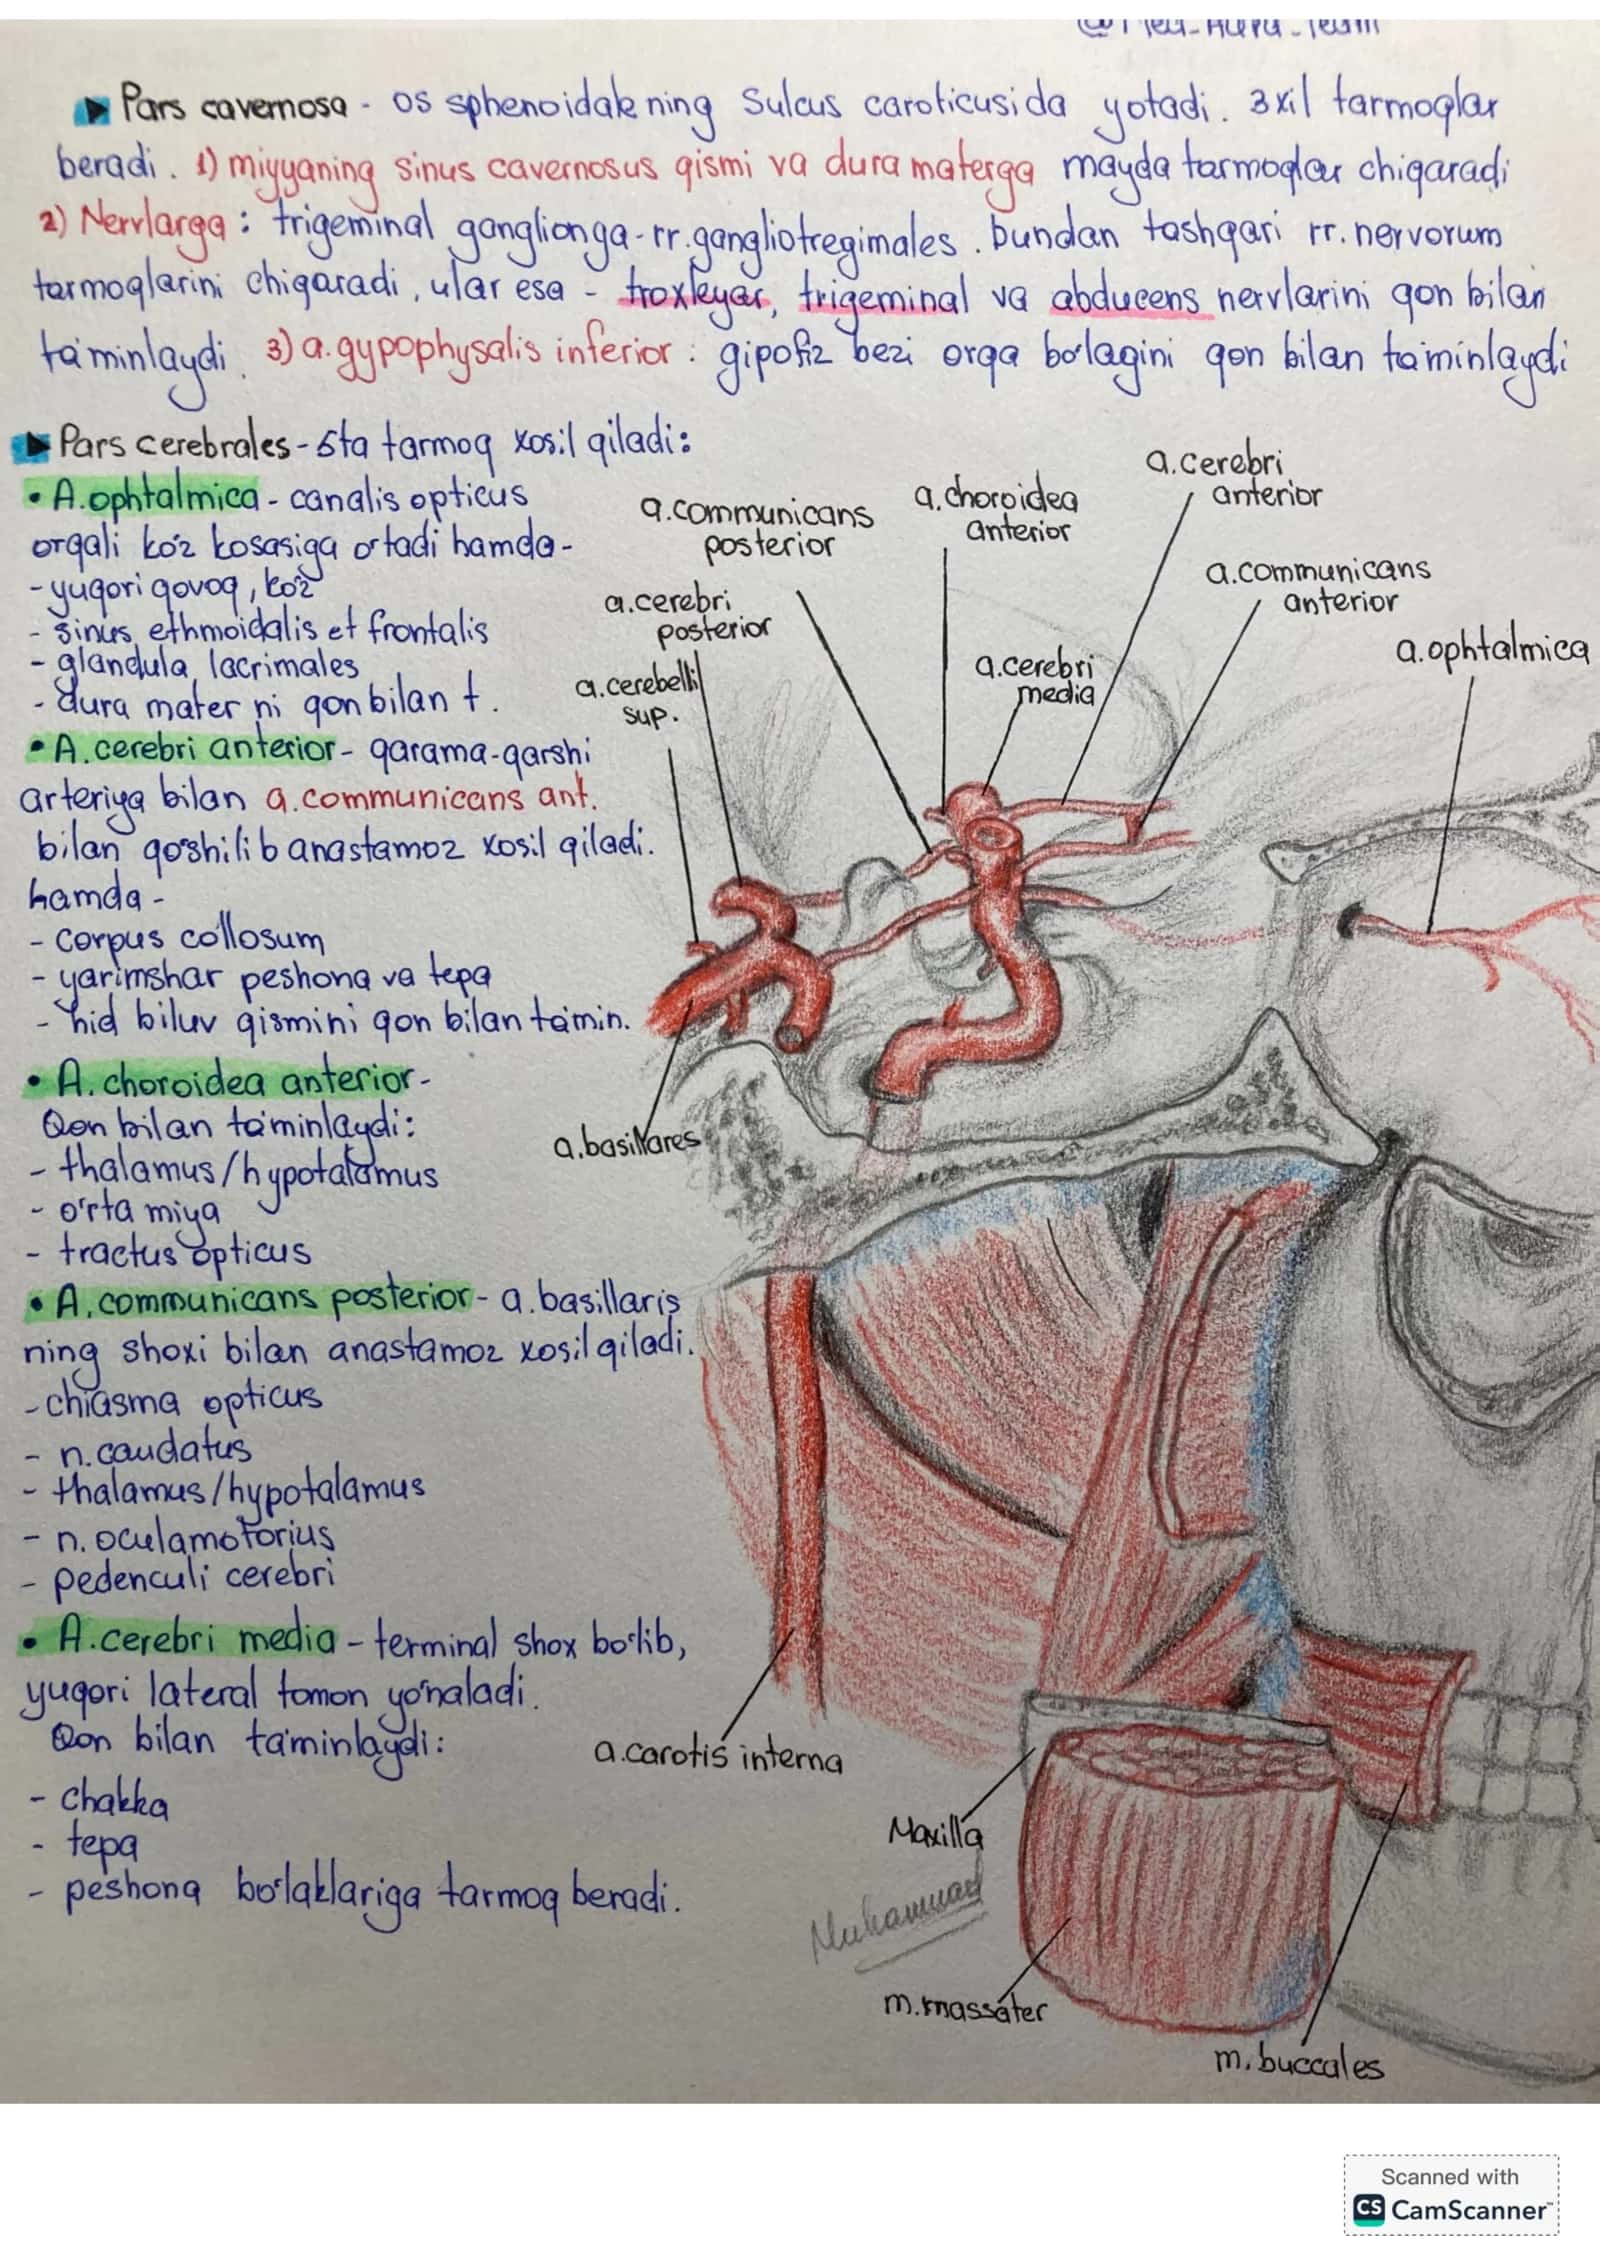 @Med-Aura-Team
Pars cavernosa - os sphenoidalening Sulcus caroticusida yotadi. 3 xil tarmoqlar
beradi. 1) miyyaning sinus cavernosus qismi va dura materga mayda tarmoqlar chiqaradi
2) Nervlarga: trigeminal ganglionga-rr.gangliotregimales. bundan tashqari rr. nervorum
tarmoqlarini chiqaradi, ular esa - troxleyar, trigeminal va abducens nervlarini qon bilan
ta'minlaydi. 3) a.gypophysalis inferior: gipofiz bezi orqa bo'lagini qon bilan ta'minlaydi
Pars cerebrales-5ta tarmoq xosil qiladi:
• A.ophtalmica - canalis opticus
orqali ko'z kosasiga o'tadi hamda-
- yuqori qovoq, ko'z
- sinus ethmoidalis et frontalis
- glandula lacrimales
- dura mater ni qon bilan t.
• A.cerebri anterior- qarama-qarshi
arteriya bilan a.communicans ant.
bilan qo'shilib anastamoz xosil qiladi.
hamda -
- corpus collosum
- yarimshar peshona va tepa
- hid biluv qismini qon bilan ta'min.
• A.choroidea anterior-
Qon bilan ta'minlaydi:
- thalamus/hypotalamus
- o'rta miya
- tractus opticus
• A.communicans posterior- a.basillaris
ning shoxi bilan anastamoz xosil qiladi.
- chiasma opticus
- n.caudatus
- thalamus/hypotalamus
- n.oculamotorius
- pedenculi cerebri
• A.cerebri media - terminal shox bo'lib,
yuqori lateral tomon yo'naladi.
Qon bilan ta'minlaydi:
- chakka
- tepa
- peshona bo'laklariga tarmoq beradi.
a.cerebri
anterior
a.choroidea
anterior
a.communicans
posterior
a.communicans
anterior
a.cerebri
posterior
a.ophtalmica
a.cerebri
media
a.cerebelli
sup.
a.basillares
a.carotis interna
Maxilla
Muhammad
m.massater
m.buccales
Scanned with
CS CamScanner™